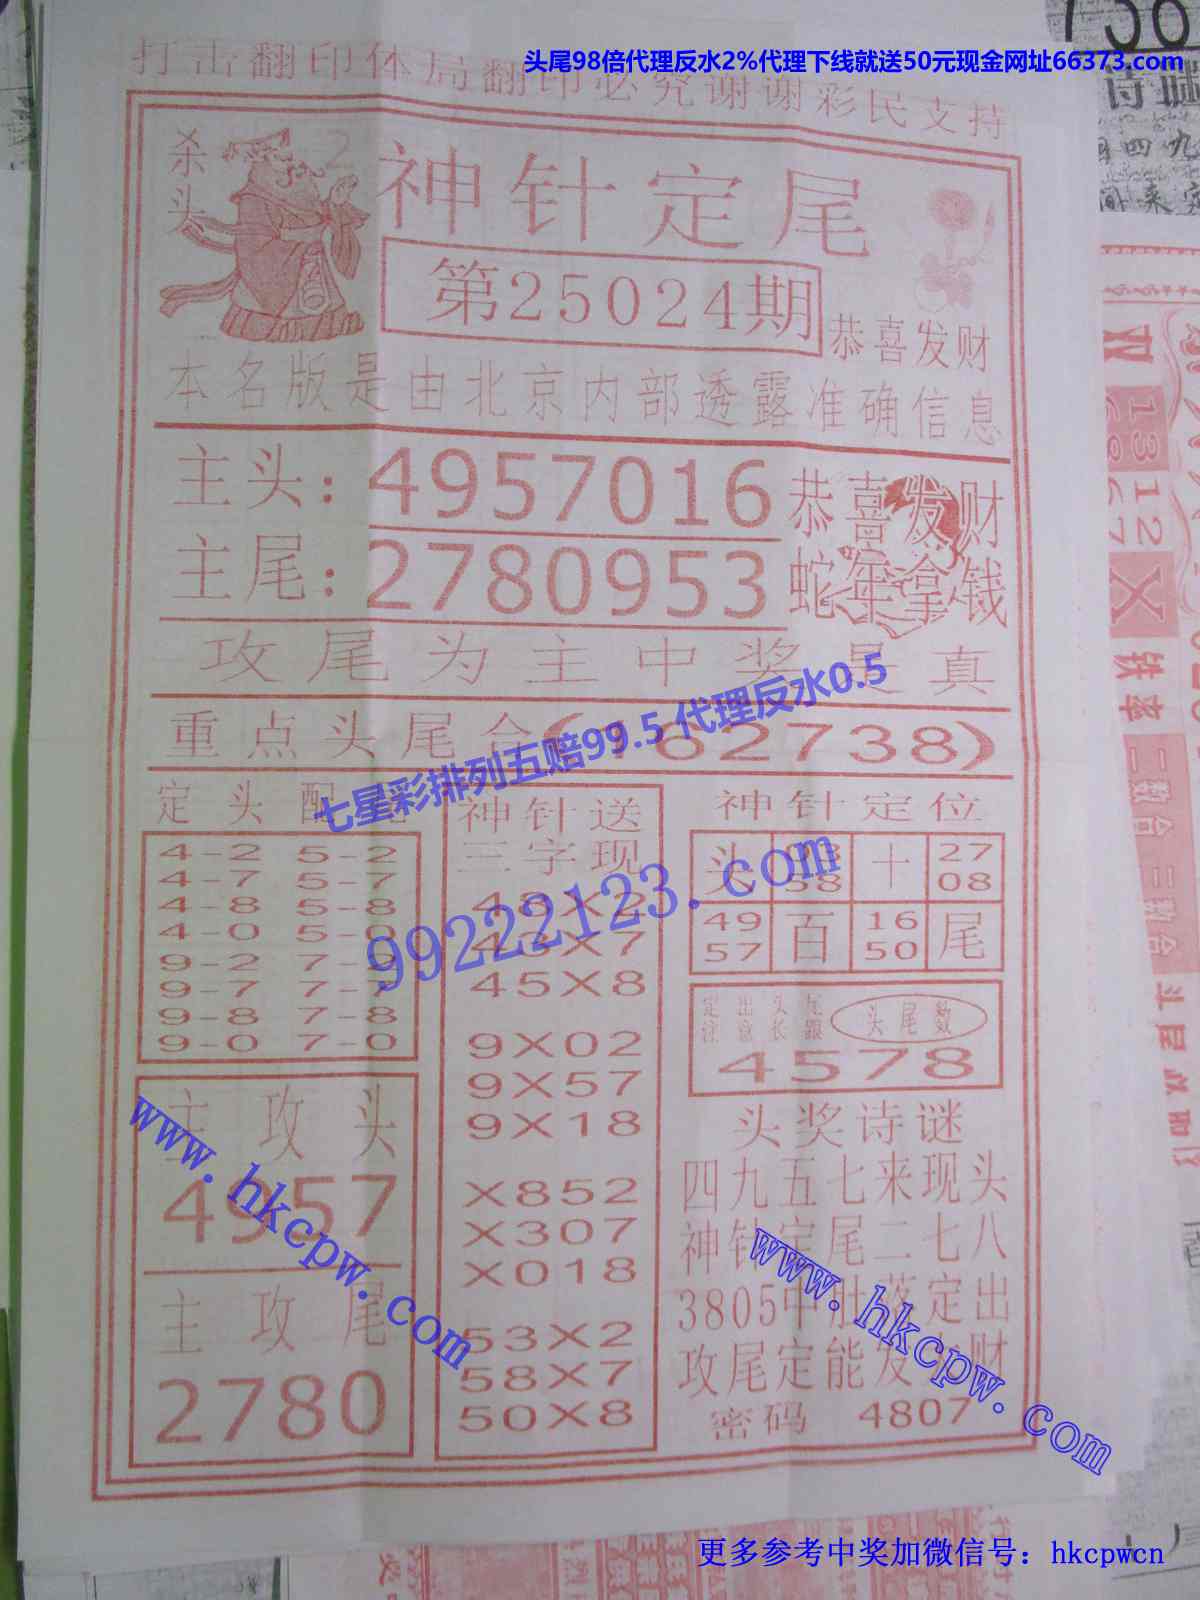 头尾98倍代理反水2%代理下线就送50元现金网址66373.com
打击翻印体局翻印必究谢谢彩民支持
杀头
2
神针定尾
第25024期
恭喜发财
本名版是由北京内部透露准确信息
主头:4957016
主尾:2780953
恭喜发财
蛇年拿钱
攻尾为主中奖是真
重点头尾合(162738)
七星彩排列五赔99.5 代理反水0.5
99222123.com
定头配
4-2 5-2
4-7 5-7
4-8 5-8
4-0 5-0
9-2 7-2
9-7 7-7
9-8 7-8
9-0 7-0
主攻头
4957
主攻尾
2780
神针送
三字现
48X2
4
X7
45X8
9X02
9X57
9X18
X852
X307
X018
53X2
58X7
50X8
神针定位
头
38
十
27
08
49
57
百
16
50
尾
定出头尾
注意长跟
头尾数
4578
头奖诗谜
四九五七来现头
神针定尾二七八
3805中肚落定出
攻尾定能发大财
密码 4807
www.hkcpw.com
www.hkcpw.com
更多参考中奖加微信号：hkcpwcn
双
13
12
X
铁率
二数合
三数合